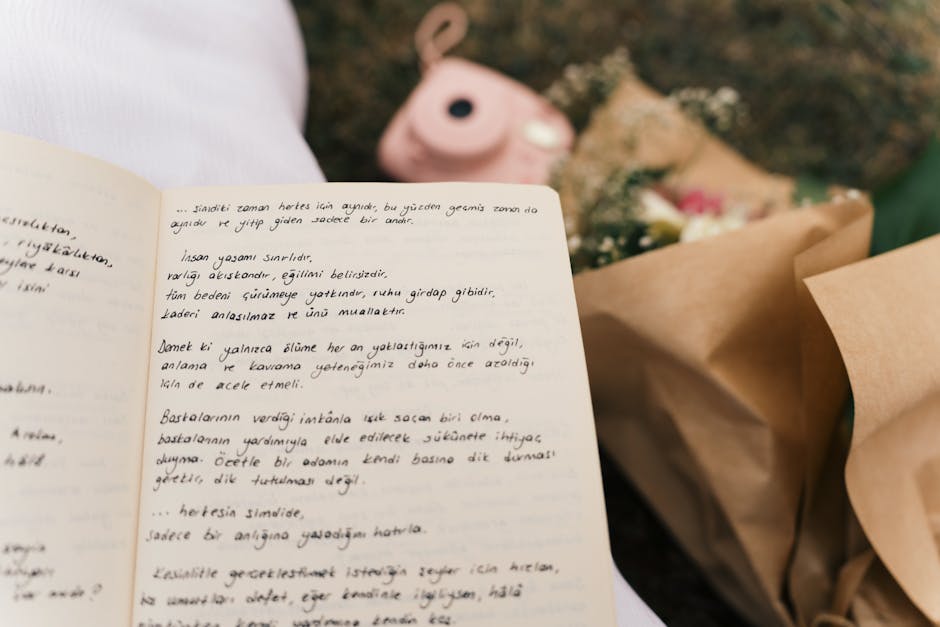 riyâkârlıktan,
... şimdiki zaman herkes için aynıdır, bu yüzden geçmiş zaman da
aynıdır ve yitip giden sadece bir andır.
İnsan yaşamı sınırlıdır,
varlığı akışkandır, eğilimi belirsizdir,
tüm bedeni çürümeye yatkındır, ruhu girdap gibidir,
kaderi anlaşılmaz ve ünü muallaktır.
Demek ki yalnızca ölüme her an yaklaştığımız için değil,
anlama ve kavrama yeteneğimiz daha önce azaldığı
için de acele etmeli.
Başkalarının verdiği imkânla ışık saçan biri olma,
başkalarının yardımıyla elde edilecek sükûnete ihtiyaç
duyma. Özetle bir adamın kendi başına dik durması
gerekir, dik tutulması değil.
... herkesin şimdide,
sadece bir anlığına yaşadığını hatırla.
Kesinlikle gerçekleştirmek istediğin şeyler için hızlan,
boş umutları defet, eğer kendinle ilgiliysen, hâlâ
mümkünken kendi yardımına kendin koş.